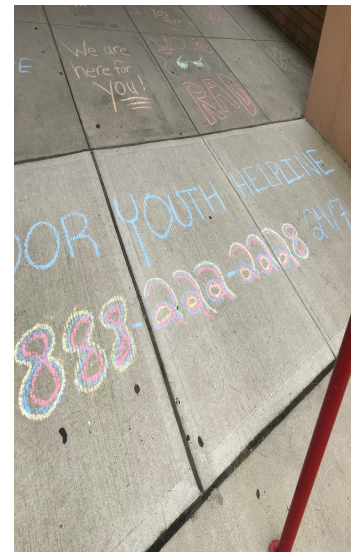 We are
here for
you!
RAD
OOR YOUTH HELPLINE
888-222-2228 24/7